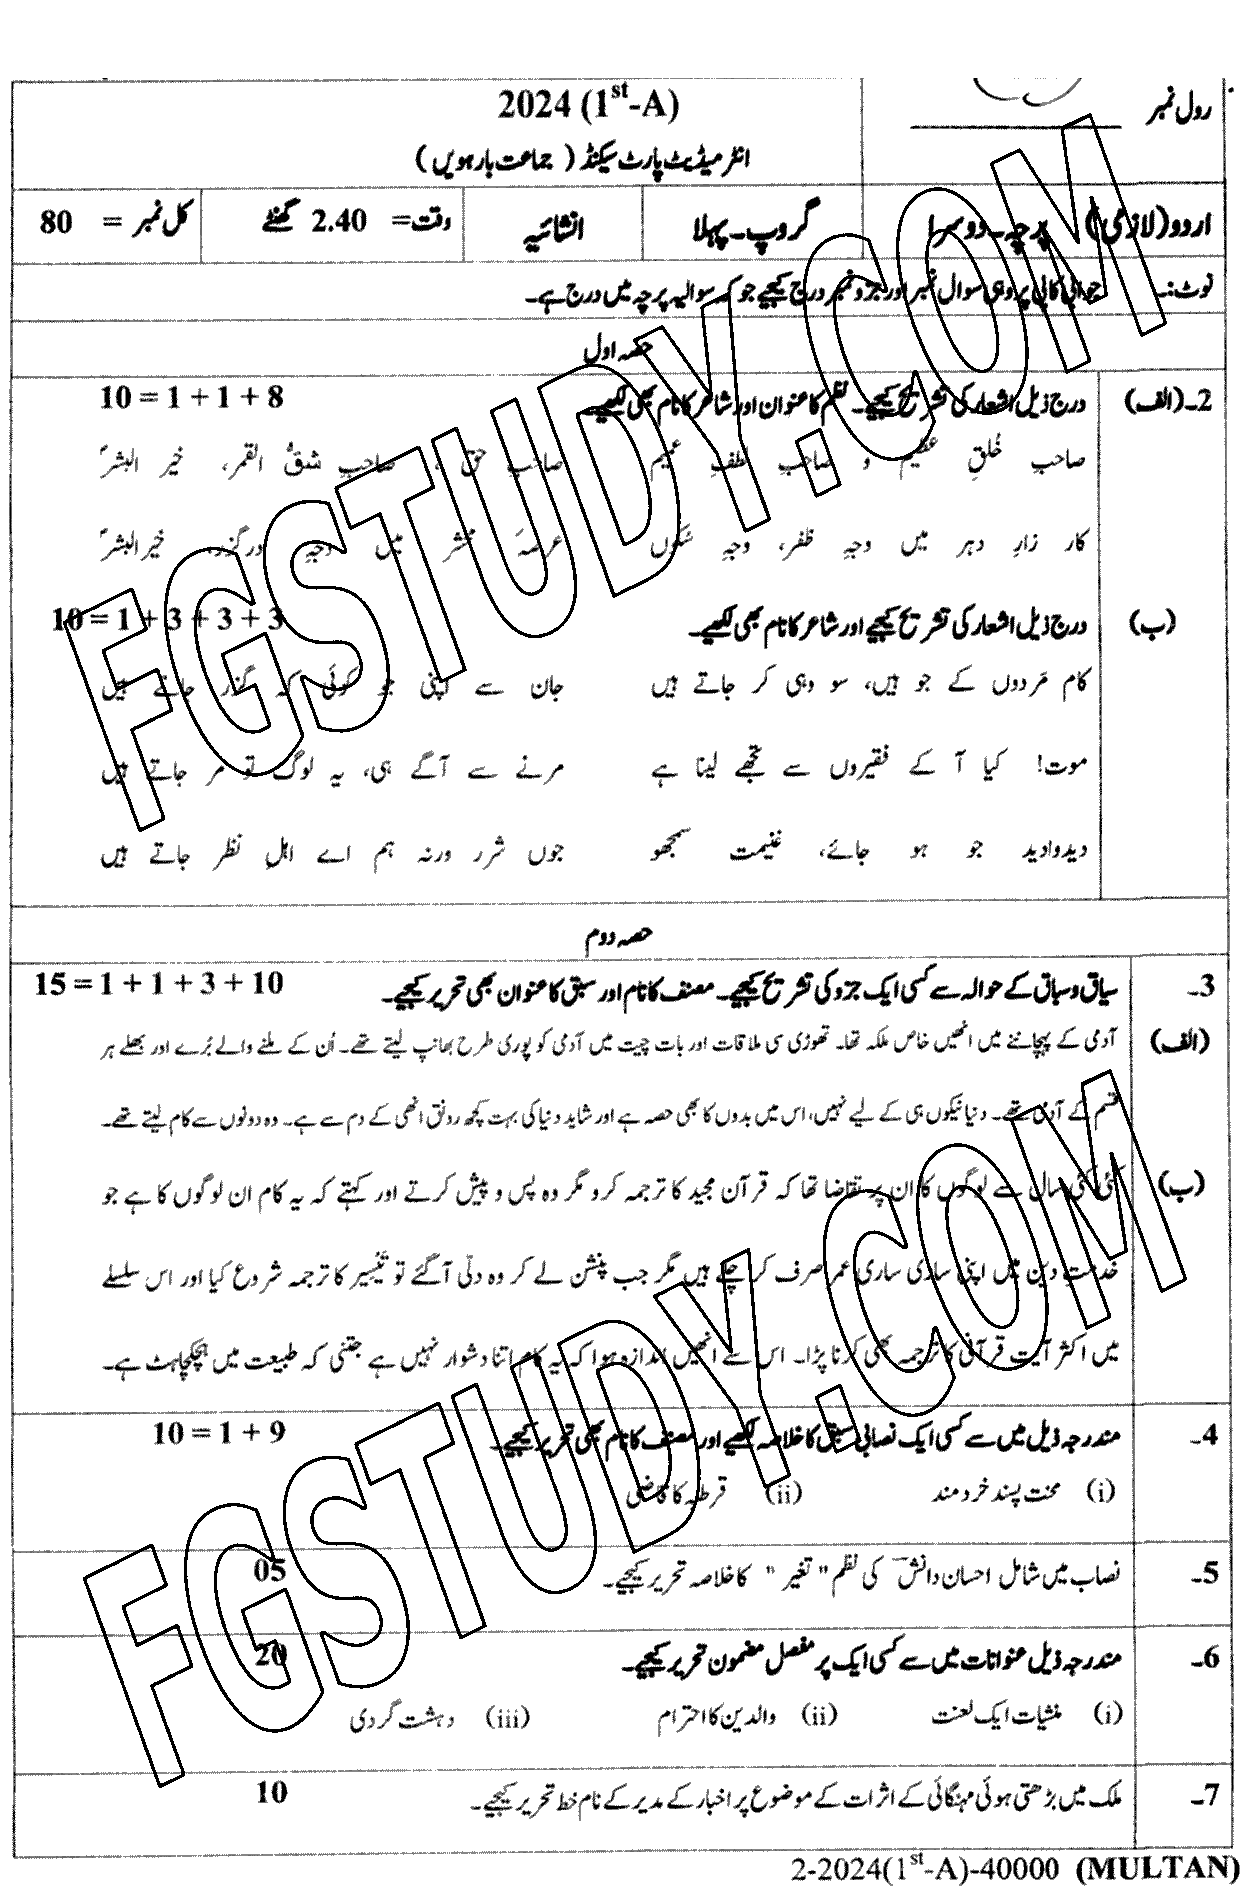 رول نمبر
2024 (1st-A)
انٹرمیڈیٹ پارٹ سیکنڈ (جماعت بارہویں)
اردو(لازمی) پرچہ۔دوسرا گروپ۔پہلا انشائیہ وقت= 2.40 گھنٹے کل نمبر = 80
نوٹ:۔ جوابی کاپی پر وہی سوال نمبر اور جزو نمبر درج کیجیے جو کہ سوالیہ پرچہ میں درج ہے۔
حصہ اول
2۔(الف) درج ذیل اشعار کی تشریح کیجیے۔ نظم کا عنوان اور شاعر کا نام بھی لکھیے۔ 10 = 1 + 1 + 8
صاحبِ خُلقِ عظیم و صاحبِ لطفِ عمیم صاحبِ حق، صاحبِ شقُ القمر، خیر البشرؐ
کار زارِ دہر میں وجہِ ظفر، وجہِ سکُوں عرصۂ محشر میں وجہِ درگزر، خیرالبشرؐ
(ب) درج ذیل اشعار کی تشریح کیجیے اور شاعر کا نام بھی لکھیے۔ 10 = 1 + 3 + 3 + 3
کام مَردوں کے جو ہیں، سو وہی کر جاتے ہیں جان سے اپنی جو کوئی کہ گزر جاتے ہیں
موت! کیا آ کے فقیروں سے تجھے لینا ہے مرنے سے آگے ہی، یہ لوگ تو مر جاتے ہیں
دیدوادید جو ہو جائے، غنیمت سمجھو جوں شرر ورنہ ہم اے اہلِ نظر جاتے ہیں
حصہ دوم
3۔ سیاق و سباق کے حوالہ سے کسی ایک جزو کی تشریح کیجیے۔ مصنف کا نام اور سبق کا عنوان بھی تحریر کیجیے۔ 15 = 1 + 1 + 3 + 10
(الف) آدمی کے پہچاننے میں انھیں خاص ملکہ تھا۔ تھوڑی سی ملاقات اور بات چیت میں آدمی کو پوری طرح بھانپ لیتے تھے۔ اُن کے ملنے والے بُرے اور بھلے ہر
قسم کے آدمی تھے۔ دنیا نیکوں ہی کے لیے نہیں، اس میں بدوں کا بھی حصہ ہے اور شاید دنیا کی بہت کچھ رونق انھی کے دم سے ہے۔ وہ دونوں سے کام لیتے تھے۔
(ب) کئی کئی سال سے لوگوں کا ان پر تقاضا تھا کہ قرآن مجید کا ترجمہ کرو مگر وہ پس و پیش کرتے اور کہتے کہ یہ کام ان لوگوں کا ہے جو
خدمتِ دین میں اپنی ساری ساری عمر صرف کر چکے ہیں مگر جب پنشن لے کر وہ دلّی آ گئے تو تَیْسِیر کا ترجمہ شروع کیا اور اس سلسلے
میں اکثر آیت قرآنی کا ترجمہ بھی کرنا پڑا۔ اس سے انھیں اندازہ ہوا کہ یہ کام اتنا دشوار نہیں ہے جتنی کہ طبیعت میں ہچکچاہٹ ہے۔
4۔ مندرجہ ذیل میں سے کسی ایک نصابی سبق کا خلاصہ لکھیے اور مصنف کا نام بھی تحریر کیجیے۔ 10 = 1 + 9
(i) محنت پسند خرد مند (ii) قرطبہ کا قاضی
5۔ نصاب میں شامل احسان دانش کی نظم "تغیر" کا خلاصہ تحریر کیجیے۔ 05
6۔ مندرجہ ذیل عنوانات میں سے کسی ایک پر مفصل مضمون تحریر کیجیے۔ 20
(i) منشیات ایک لعنت (ii) والدین کا احترام (iii) دہشت گردی
7۔ ملک میں بڑھتی ہوئی مہنگائی کے اثرات کے موضوع پر اخبار کے مدیر کے نام خط تحریر کیجیے۔ 10
2-2024(1st-A)-40000 (MULTAN)
FGSTUDY.COM
FGSTUDY.COM